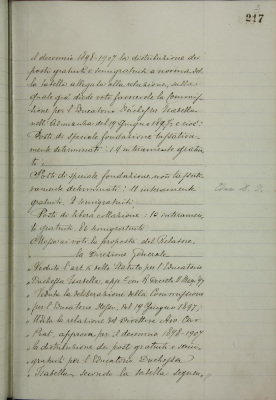 217
il decennio 1898-1907 la distribuzione dei
posti gratuiti e semigratuiti a norma del
la tabella allegata alla relazione, sulla
quale già diede voto favorevole la Commis
sione per l'Educatorio Duchessa Isabella
nell'adunanza del 19 Giugno 1897, e cioè:
Posti di speciale fondazione tassativa
mente determinati: 14 interamente gratui
ti.
Posti di speciale fondazione non tassati
vamente determinati: 11 interamente
gratuiti, 2 semigratuiti.
Posti di libera collazione: 14 interamen
te gratuiti, 32 semigratuiti
Messa ai voti la proposta del Relatore,
la Direzione Generale
Veduto l'art. dello Statuto per l'Educatorio
Duchessa Isabella, appr. con R. Decreto
Veduta la deliberazione della Commissione
per l'Educatorio stesso, del 19 Giugno 1897;
Udita la relazione del Direttore Avv. Cav.
approva per il decennio 1898-1907
la distribuzione dei posti gratuiti e semi
gratuiti per l'Educatorio Duchessa
Isabella, secondo la tabella seguente,